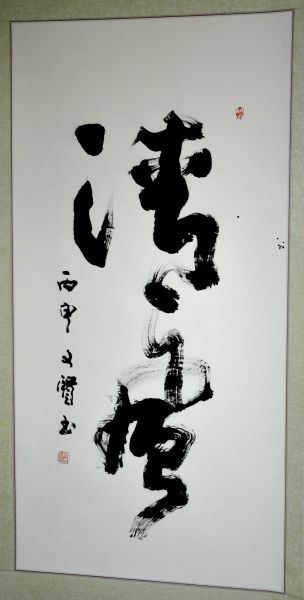 清風
丙申文賢書